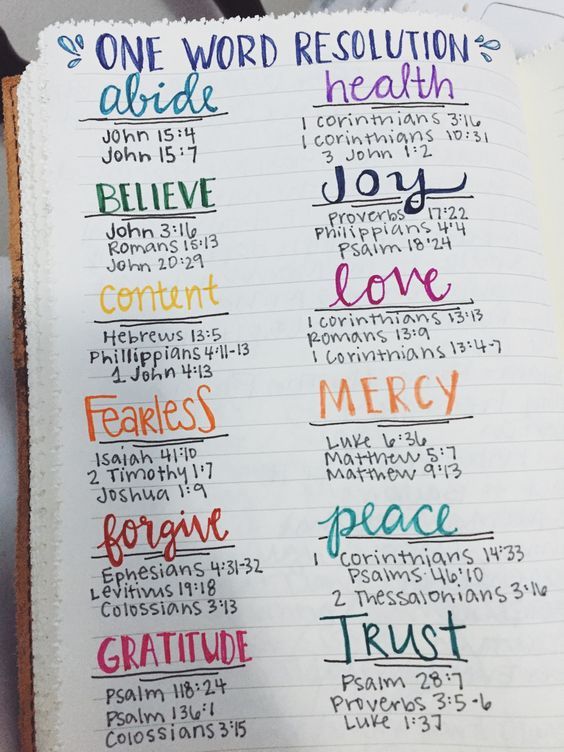 ONE WORD RESOLUTION
abide
John 15:4
John 15:7
BELIEVE
John 3:16
Romans 15:13
John 20:29
content
Hebrews 13:5
Phillippians 4:11-13
1 John 4:13
Fearless
Isaiah 41:10
2 Timothy 1:7
Joshua 1:9
forgive
Ephesians 4:31-32
Levitius 19:18
Colossians 3:13
GRATITUDE
Psalm 118:24
Psalm 136:1
Colossians 3:15
health
1 corinthians 3:16
1 corinthians 10:31
3 John 1:2
Joy
Proverbs 17:22
Philippians 4:4
Psalm 18:24
love
1 corinthians 13:13
Romans 13:9
1 Corinthians 13:4-7
MERCY
Luke 6:36
Matthew 5:7
Matthew 9:13
peace
1 Corinthians 14:33
Psalms 46:10
2 Thessalonians 3:16
TRUST
Psalm 28:7
Proverbs 3:5-6
Luke 1:37